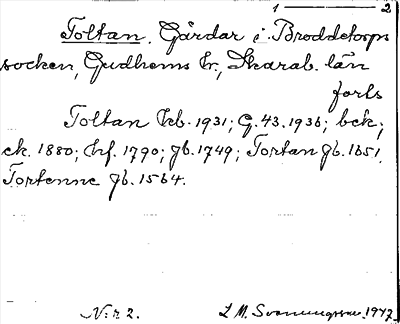 1 — 2
Toltan. Gårdar i Broddetorps
socken, Gudhems hr., Skarab. län
forts
Toltan kb. 1931; G. 43. 1936; bek;
ek. 1880; hf. 1790; jb. 1749; Tortan jb. 1651,
Tortenne jb. 1564.
N:r 2. L M. Svanungsson 1947